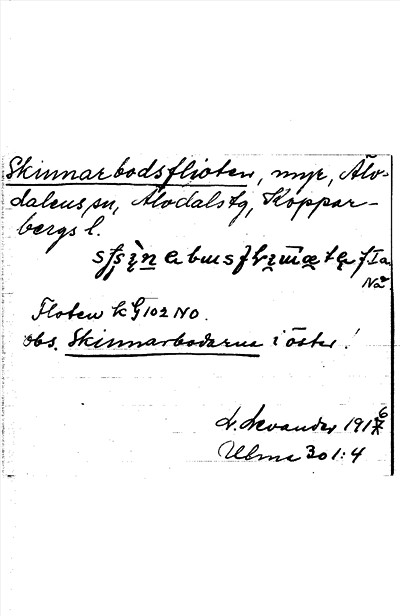 Skinnarbodsflioten, myr, Älv-
dalens sn, Älvdals tg, Koppar-
bergs l.
Ia
Floten k G 102 NO.
obs. Skinnarbodarna i öster!
L. Levander 191
Ulma 301:4